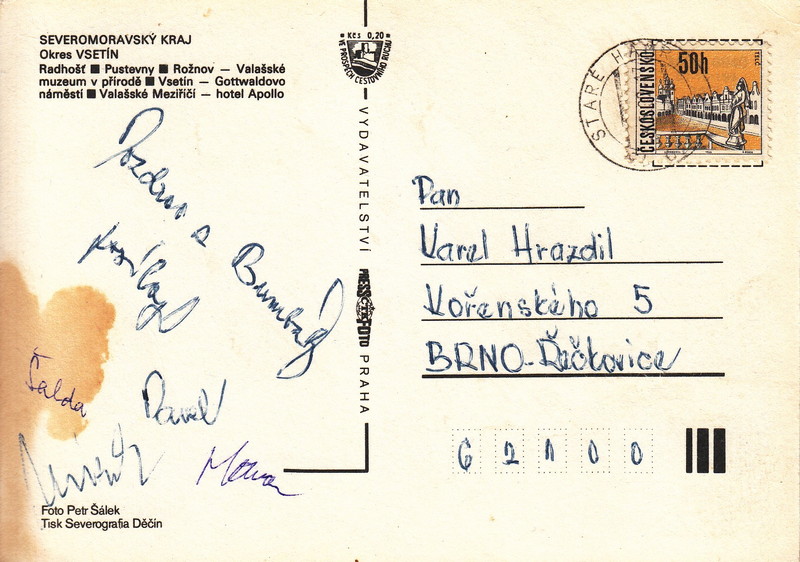 SEVEROMORAVSKÝ KRAJ
Okres VSETÍN
Radhošť ■ Pustevny ■ Rožnov – Valašské
muzeum v přírodě ■ Vsetín – Gottwaldovo
náměstí ■ Valašské Meziříčí – hotel Apollo
Kčs 0,20
VE PROSPĚCH CESTOVNÍHO RUCHU
VYDAVATELSTVÍ PRESSFOTO PRAHA
STARÉ HA
ČESKOSLOVENSKO
50h
TELČ
Pozdrav s
Šalda
Pavel
Pan
Karel Hrazdil
Kořenského 5
BRNO-Řečkovice
62100
Foto Petr Šálek
Tisk Severografia Děčín